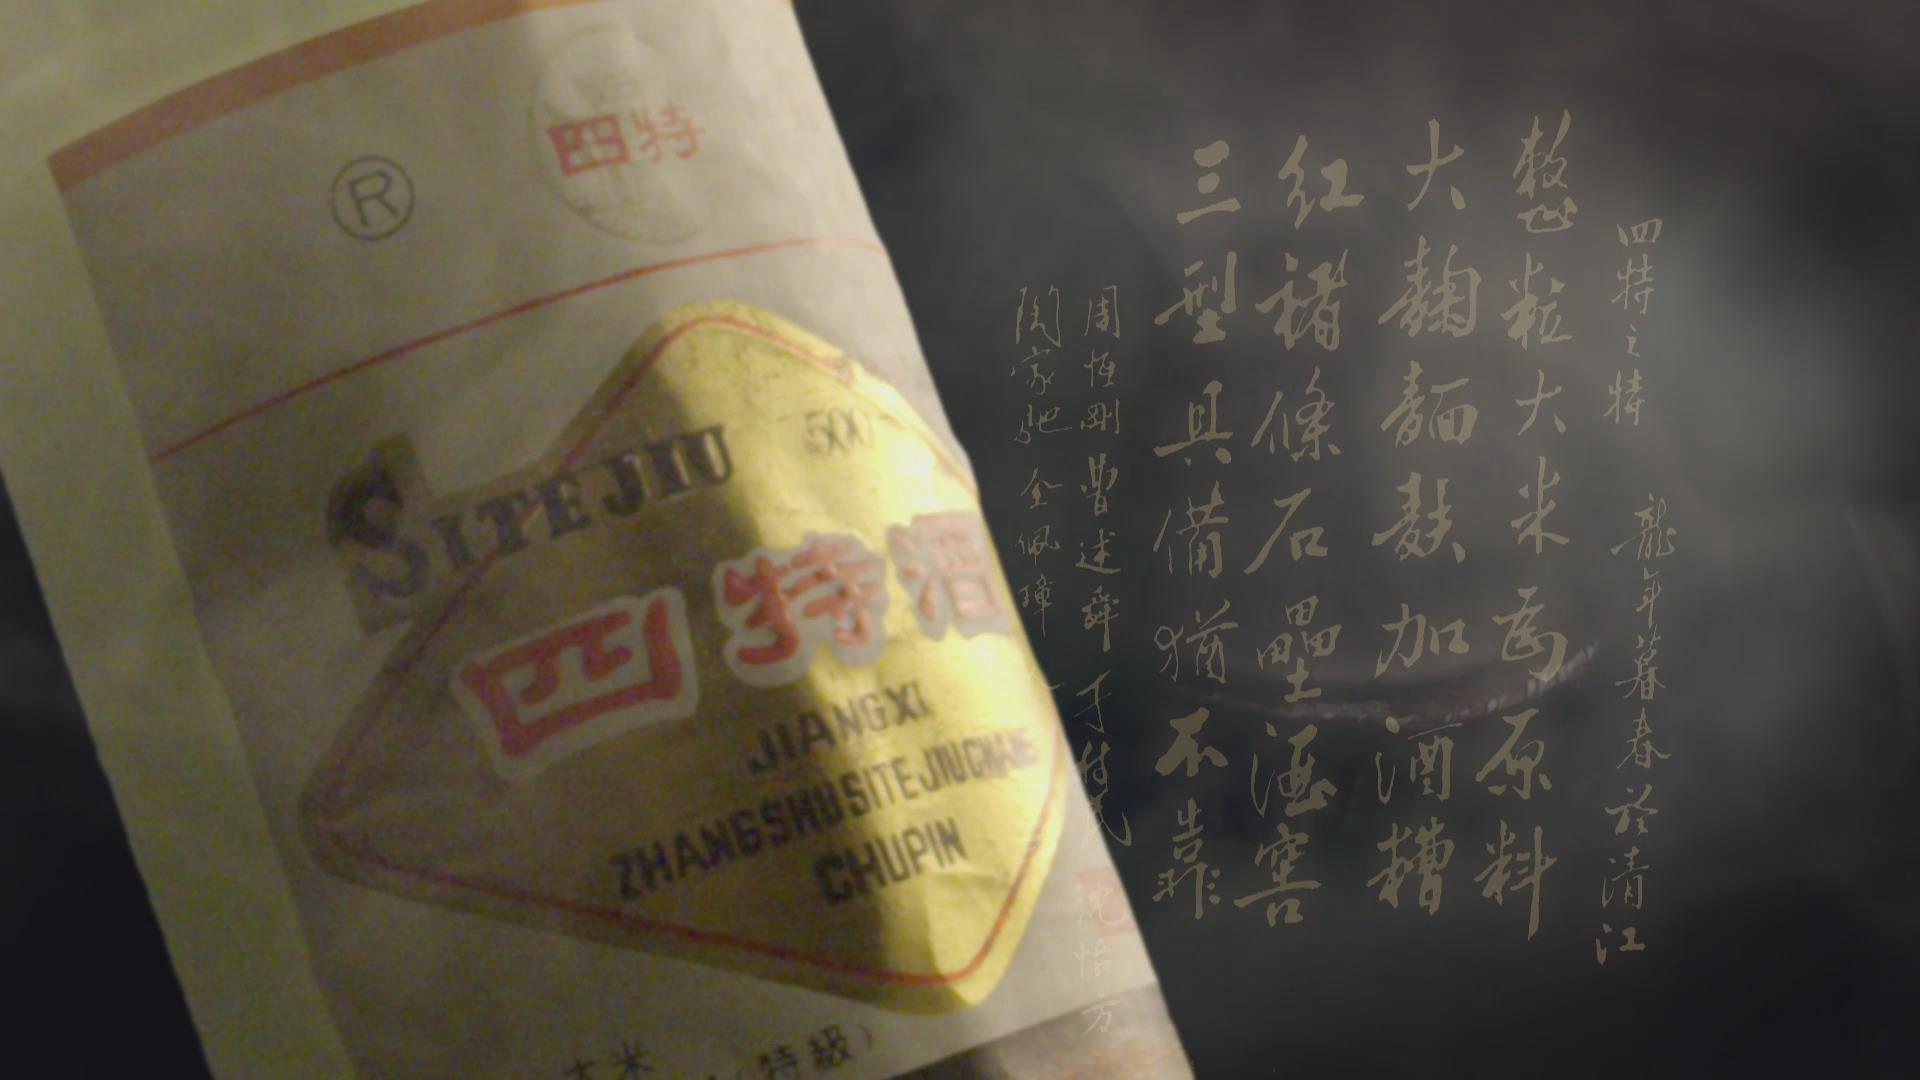 R
四特
SITE JIU
500
四特酒
JIANGXI
ZHANGSHUSITEJIUCHANG
CHUPIN
大米
特級）
四特之特 龍年暮春於清江
整粒大米為原料
大麯麵麩加酒糟
紅褚條石壘酒窖
三型具備猶不靠
周恆剛 曹述舜 于樹民 沈怡方
陶家馳 全佩璋